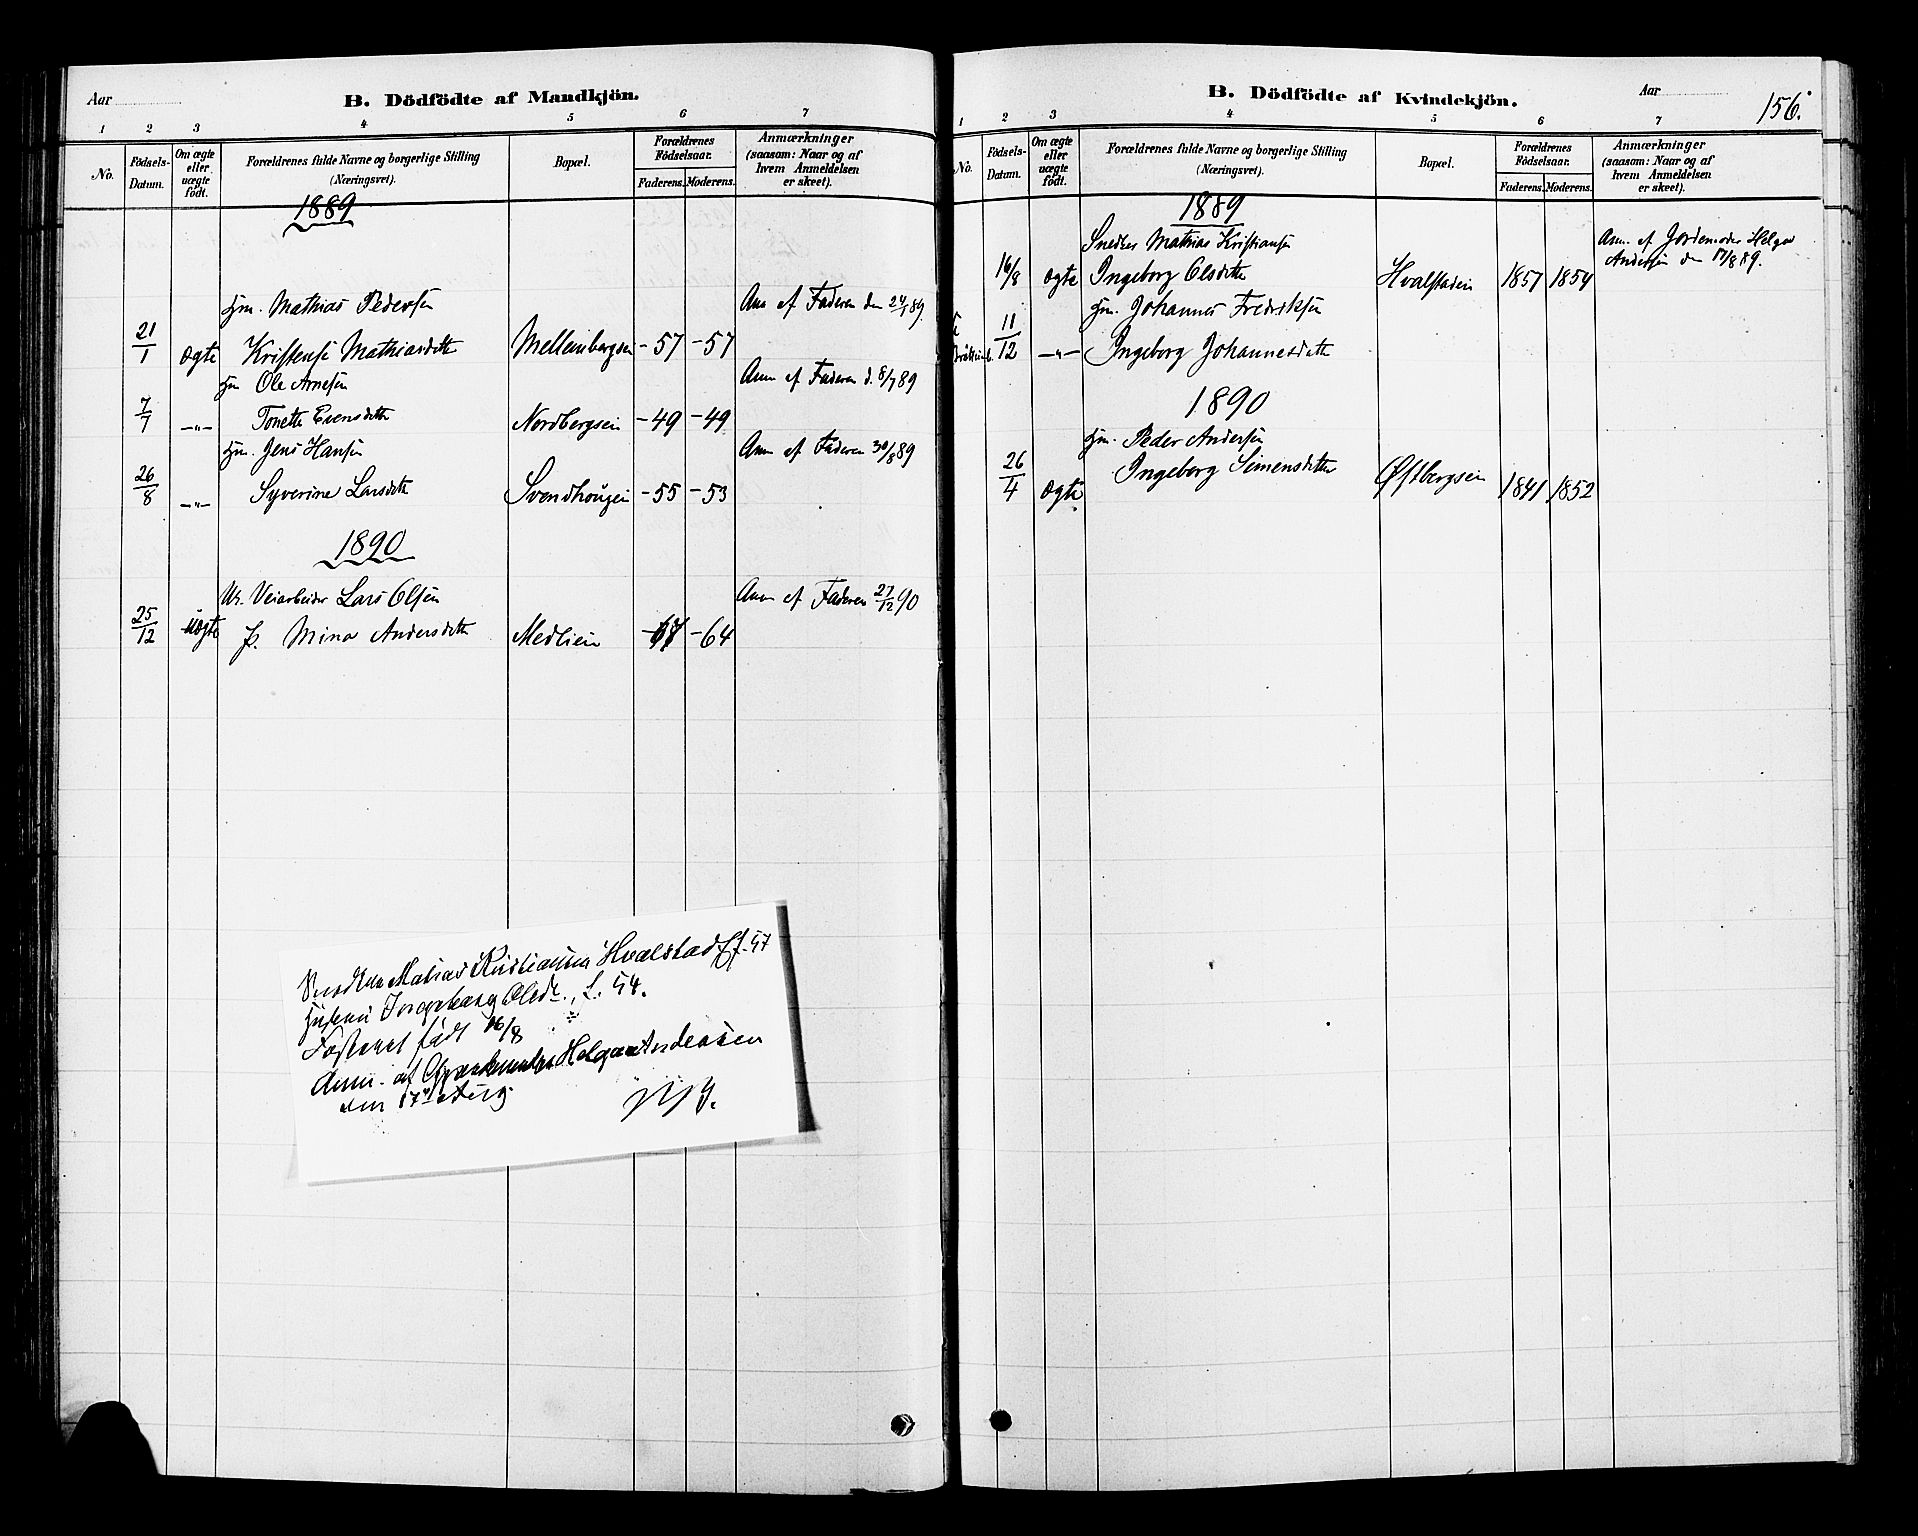 Aar
B. Dödfödte af Mandkjön.
1 2 3 4 5 6 7
No.
Födsels-Datum.
Om ægte eller uægte födt.
Forældrenes fulde Navne og borgerlige Stilling (Næringsvei).
Bopæl.
Forældrenes Fødselsaar.
Faderens. Moderens.
Anmærkninger (saasom: Naar og af hvem Anmeldelsen er skeet).
1889
Gm. Mathias Pedersen Anm af Faderen den 24/1 89.
21/1 ægte Kristense Mathiasdatter -57 -57
Gm Ole Arnesen Anm af Faderen d. 8/7 89
7/7 -"- Tonette Evensdatter Nordbergseie -49 -49
Gm. Jens Hansen Anm af Faderen 30/8 89
26/8 -"- Syverine Larsdatter -55 -53
1890
Uk. Veiarbeider Lars Olsen Anm af Faderen 27/12 90
25/12 uægte P. Mina Andersdatter Medlien -64
Matias Kristiansen Hvalstad Ef. 57
Ingeborg Olsdt., f. 54.
Fosteret födt 16/8
Anm. af Helga Andersen
den 17de Aug
B. Dödfödte af Kvindekjön.
Aar
156.
1 2 3 4 5 6 7
No.
Födsels-Datum.
Om ægte eller uægte födt.
Forældrenes fulde Navne og borgerlige Stilling (Næringsvei).
Bopæl.
Forældrenes Födselsaar.
Faderens. Moderens.
Anmærkninger (saasom: Naar og af hvem Anmeldelsen er skeet).
1889
Snedker Mathias Kristiansen Anm. af Jordemoder Helga
16/8 ægte Ingeborg Olsdatter Hvalstadeie 1857 1854 Andersen den 17/8 89.
Gm. Johannes Fredriksen
11/12 -"- Ingeborg Johannesdatter
1890
Gm. Peder Andersen
26/4 ægte Ingeborg Simensdatter Østbergseie 1841 1852